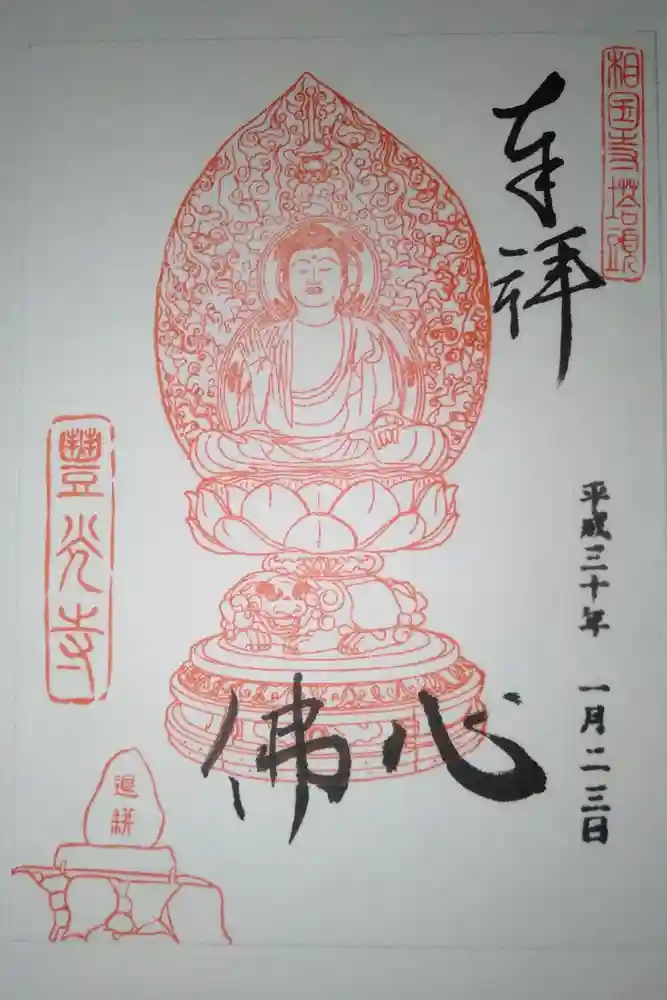 相国寺塔頭
奉拝
平成三十年 一月二三日
佛心
豐光寺
退耕